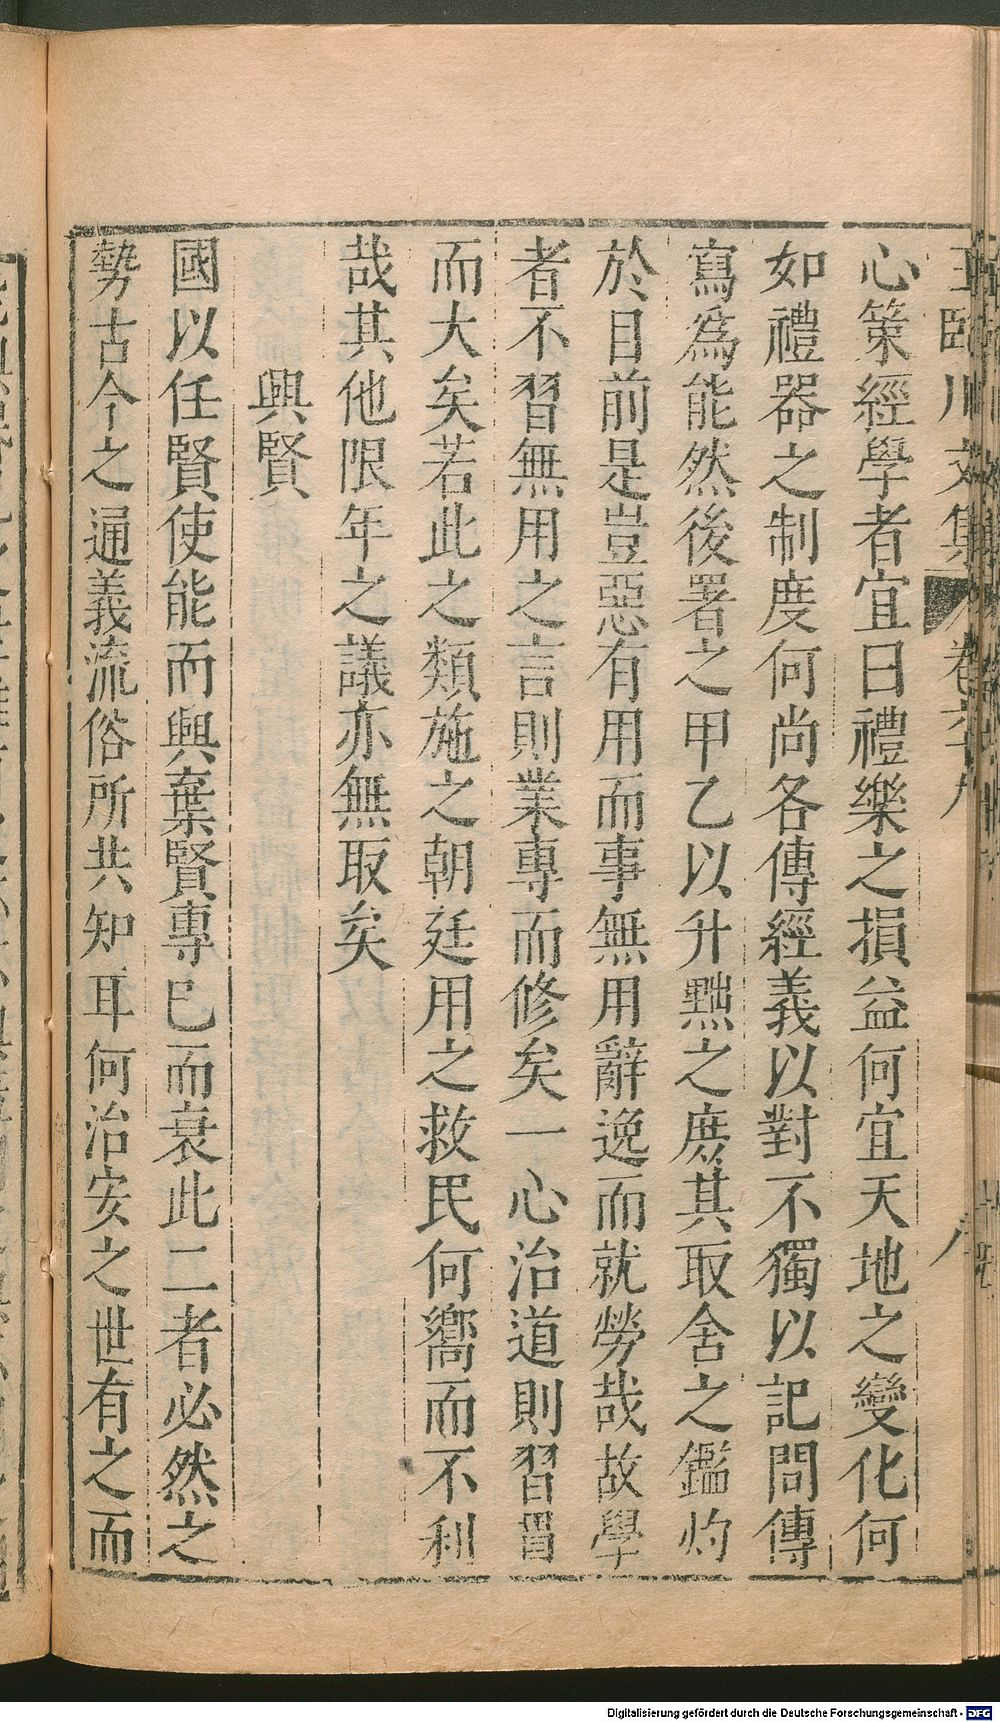 王臨川文集 卷六十九
心策經學者宜曰禮樂之損益何宜天地之變化何
如禮器之制度何尚各傳經義以對不獨以記問傳
寫為能然後署之甲乙以升黜之庶其取舍之鑑灼
於目前是豈惡有用而事無用辭逸而就勞哉故學
者不習無用之言則業專而修矣一心治道則習習
而大矣若此之類施之朝廷用之救民何嚮而不利
哉其他限年之議亦無取矣
興賢
國以任賢使能而興棄賢專巳而衰此二者必然之
勢古今之通義流俗所共知耳何治安之世有之而
Digitalisierung gefördert durch die Deutsche Forschungsgemeinschaft - DFG